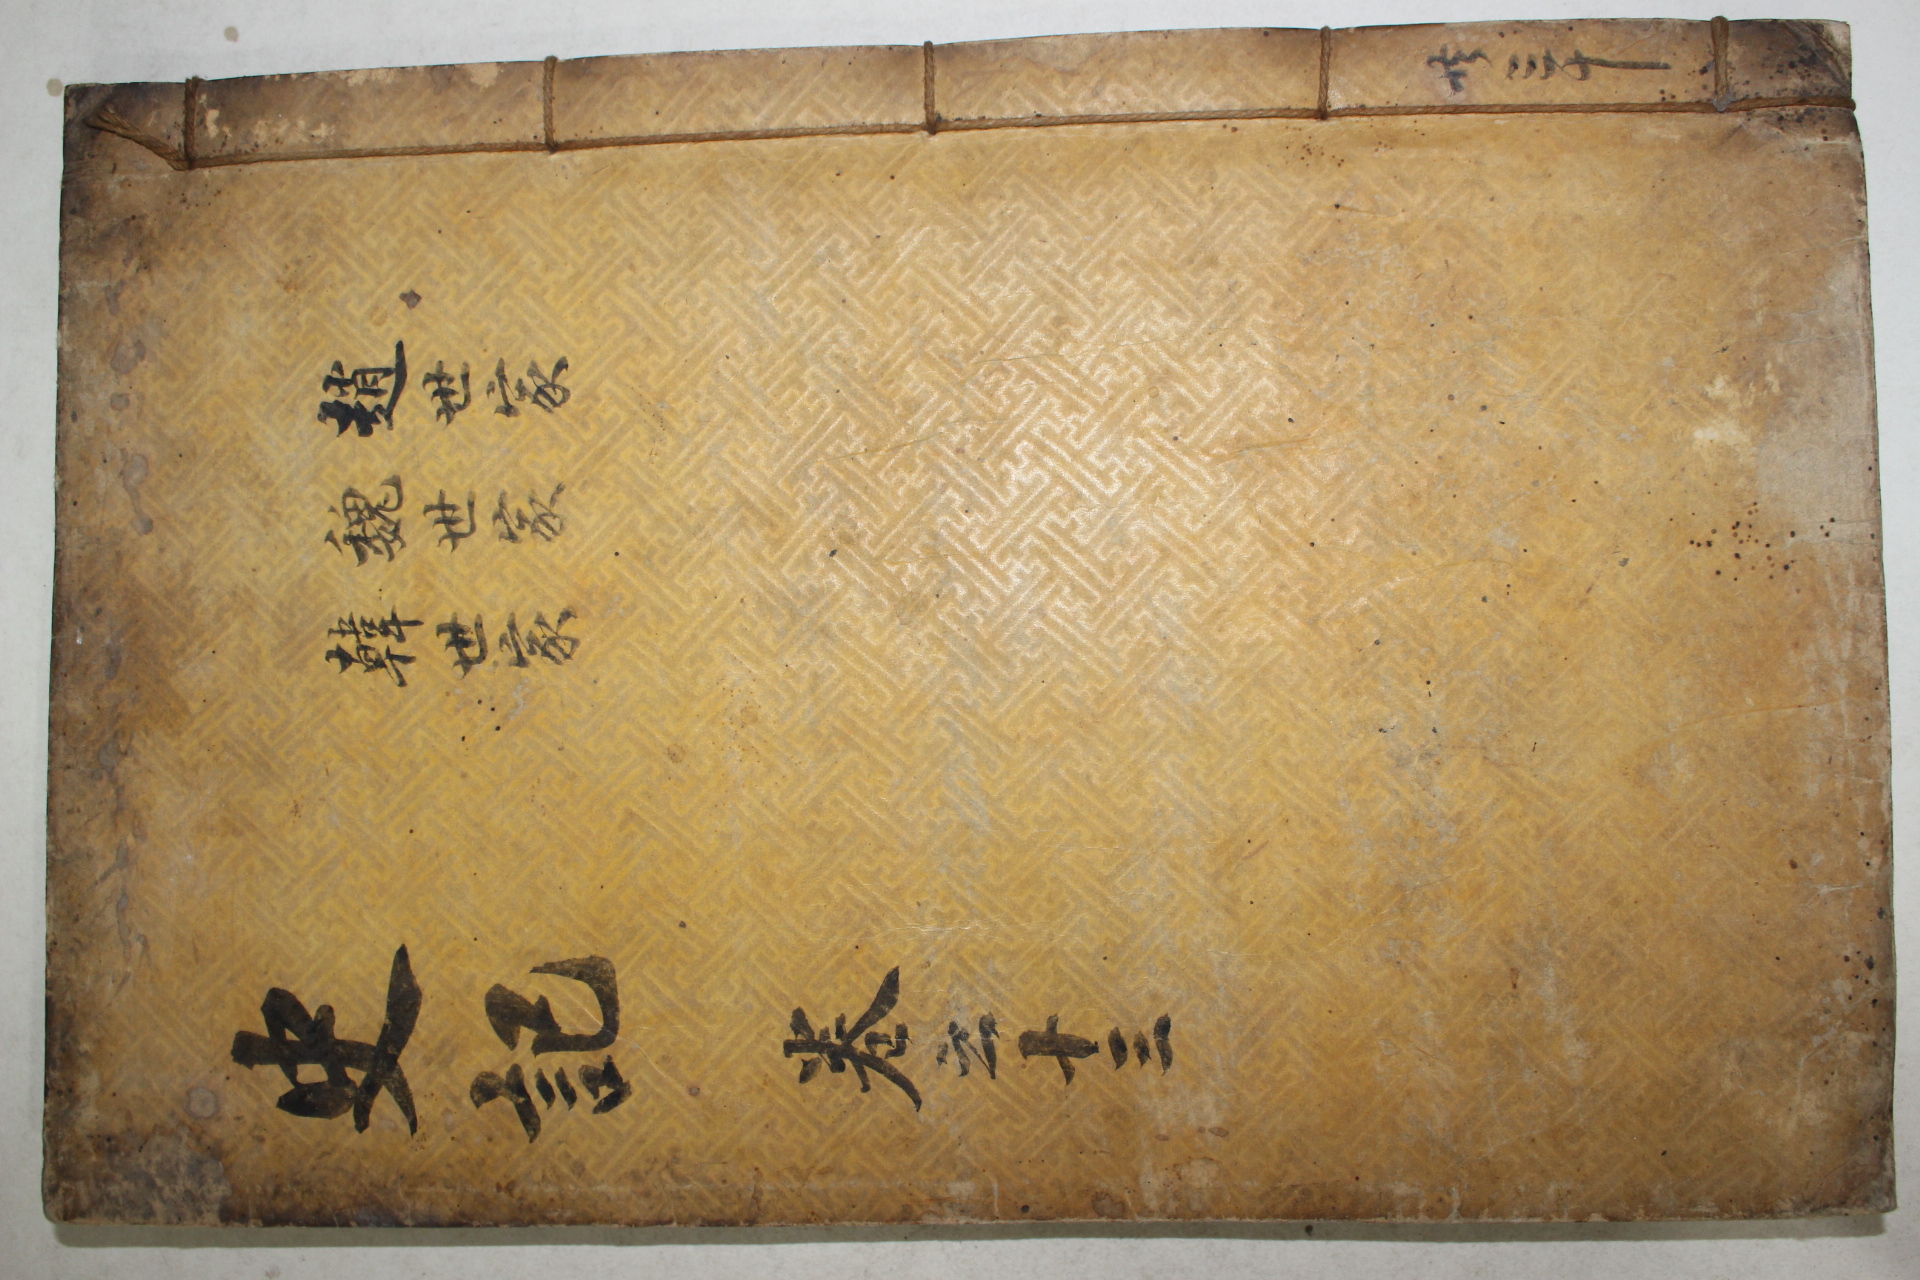 共三十
趙世家
魏世家
韓世家
史記 卷之十三